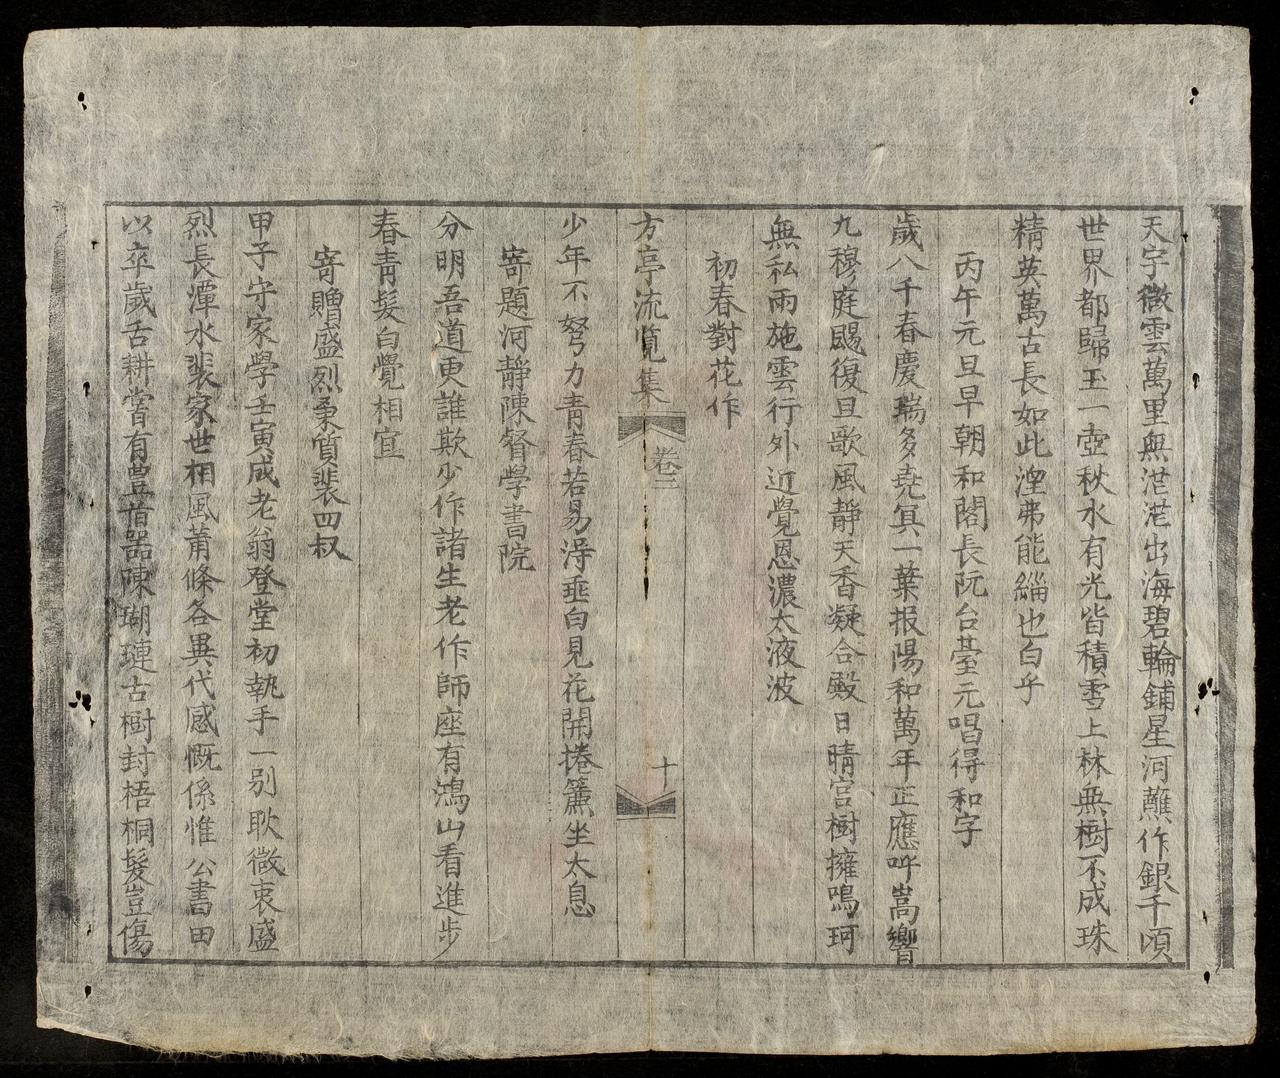 天宇微雲萬里無茫茫出海碧輪鋪星河蘸作銀千頃
世界都歸玉一壺秋水有光皆積雪上林無樹不成珠
精英萬古長如此涅弗能緇也白乎
丙午元旦早朝和閣長阮台臺元唱得和字
歲八千春慶瑞多堯蓂一葉报陽和萬年正應呼嵩響
九穆庭賜復旦歌風靜天香凝合殿日晴宮樹擁鳴珂
無私雨施雲行外近覺恩濃太液波
初春對花作
方亭流覧集
卷三
十
少年不努力青春若易淂垂白見花開捲簾坐太息
寄題河靜陳督學書院
分明吾道更誰欺少作諸生老作師座有鴻山看進步
春青髮白覺相宜
寄贈盛烈
裴四叔
甲子守家學壬寅成老翁登堂初執手一別耿微衷盛
烈長潭水裴家世相風蕭條各異代感慨係惟公書田
以卒歲舌耕嘗有豊首器陳瑚璉古樹封梧桐髮豈傷